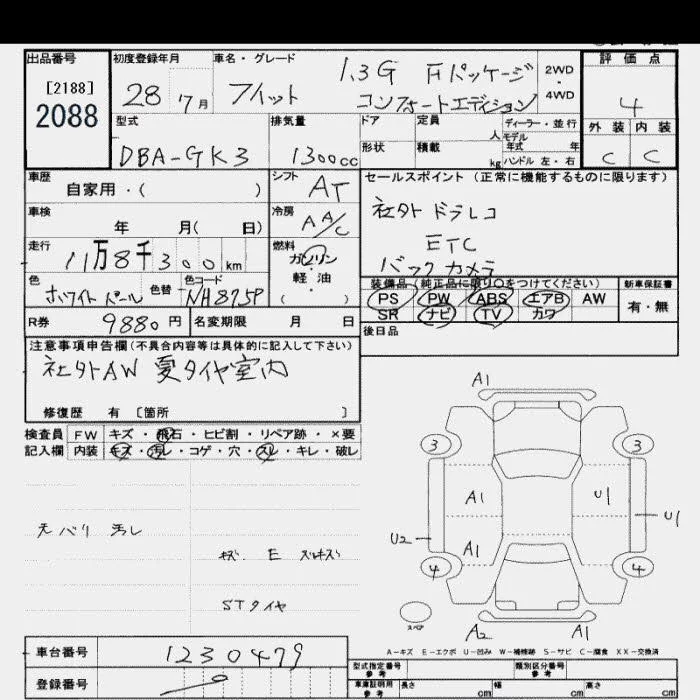 出品番号 初度登録年月 車名・グレード 評価点
[2188]
2088
28 7月 フィット 1.3G Fパッケージ
コンフォートエディション
2WD
・
4WD
4
型式 排気量 ドア 定員 人 ディーラー・並行
モデル
年式 年
外装 内装
DBA-GK3 1300cc 形状 積載 kg ハンドル 左・右 C C
車歴 自家用・( ) シフト AT
セールスポイント (正常に機能するものに限ります)
社外 ドラレコ
ETC
バックカメラ
車検 年 月( 日) 冷房 AA/C
走行 11万8千300km 燃料 ガソリン
・
軽油
( )
色 ホワイトパール 色替 色コード NH875P
装備品 (純正品に限り○をつけてください) 新車保証書
PS PW ABS エアB AW 有・無
SR ナビ TV カワ
R券 9880円 名変期限 月 日
後日品
注意事項申告欄(不具合内容等は具体的に記入して下さい)
社外AW 夏タイヤ室内
修復歴 有 〔箇所 〕
検査員 FW キズ・飛石・ヒビ割・リペア跡・×要
記入欄 内装 キズ・汚レ・コゲ・穴・スレ・キレ・破レ
A1
3 3
A1 U1
U1
U2
A1
4 4
スペア
A2 A1
天バリ 汚レ
キズ E
STタイヤ
A-キズ E-エクボ U-凹み W-補修跡 S-サビ C-腐食 XX-交換済
車台番号 1230479
登録番号
型式指定番号
参考
類別区分番号
参考
車庫証明用
参考
長さ cm 幅 cm 高さ cm